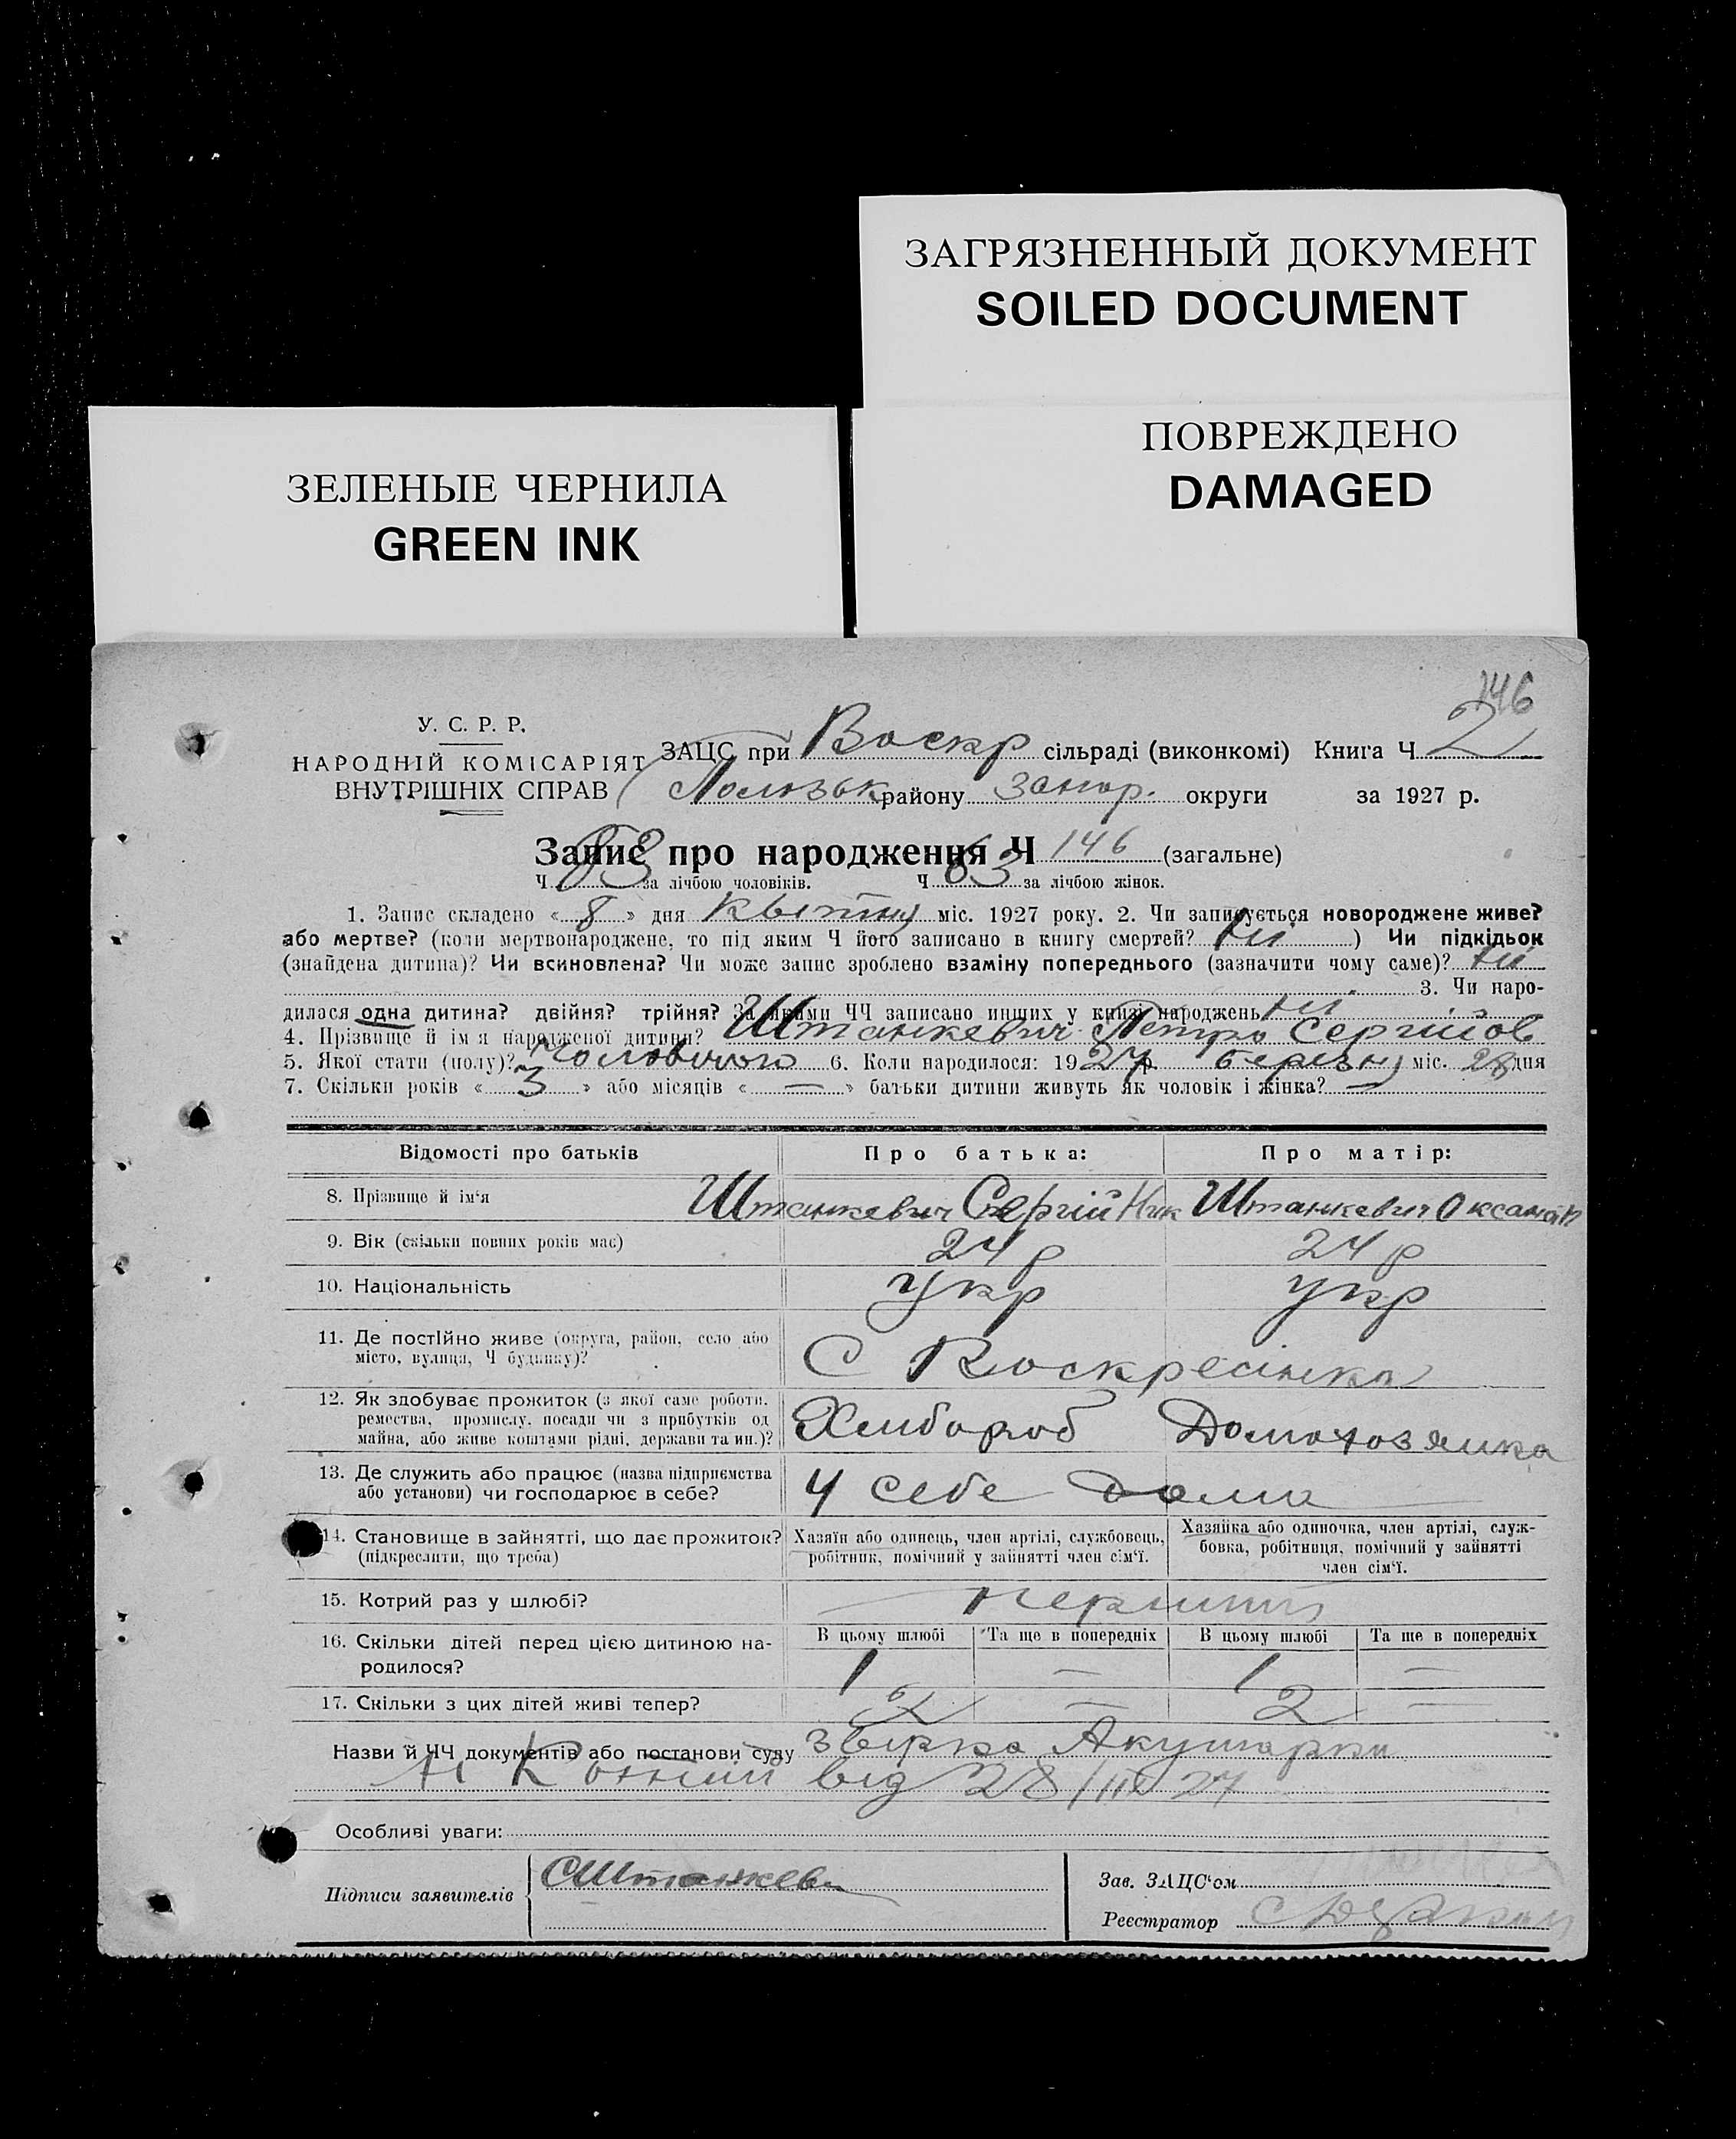 ЗАГРЯЗНЕННЫЙ ДОКУМЕНТ
SOILED DOCUMENT
ПОВРЕЖДЕНО
DAMAGED
ЗЕЛЕНЫЕ ЧЕРНИЛА
GREEN INK
146
У. С. Р. Р.
НАРОДНІЙ КОМІСАРІЯТ
ВНУТРІШНІХ СПРАВ
ЗАЦС при Воскр сільраді (виконкомі) Книга Ч 2
Пологськ району Запор. округи за 1927 р.
Запис про народження Ч 146 (загальне)
Ч 83 за лічбою чоловіків. Ч 63 за лічбою жінок.
1. Запис складено « 8 » дня квітня міс. 1927 року. 2. Чи записується новороджене живе?
або мертве? (коли мертвонароджене, то під яким Ч його записано в книгу смертей? ні ) Чи підкідьок
(знайдена дитина)? Чи всиновлена? Чи може запис зроблено взаміну попереднього (зазначити чому саме)? ні
3. Чи наро-
дилася одна дитина? двійня? трійня? За якими ЧЧ записано инших у книзі народжень ні
4. Прізвище й ім'я народженої дитини? Штанкевич Петро Сергійов
5. Якої стати (полу)? чоловічого 6. Коли народилося: 1927 р березня міс. 28 дня
7. Скільки років « 3 » або місяців « — » батьки дитини живуть як чоловік і жінка? —
Відомості про батьків Про батька: Про матір:
8. Прізвище й ім'я Штанкевич Сергій Ник Штанкевич Оксана П
9. Вік (скільки повних років має) 24 р 24 р
10. Національність укр укр
11. Де постійно живе (округа, район, село або
місто, вулиця, Ч будинку)? С Воскресінка
12. Як здобуває прожиток (з якої саме роботи.
ремества, промислу, посади чи з прибутків од
майна, або живе коштами рідні, держави та ин.)? Хлибороб Домохозяика
13. Де служить або працює (назва підприємства
або установи) чи господарює в себе? У себе дома
14. Становище в зайнятті, що дає прожиток?
(підкреслити, що треба)
Хазяїн або одинець, член артілі, службовець,
робітник, помічний у зайнятті член сім'ї.
Хазяйка або одиночка, член артілі, служ-
бовка, робітниця, помічний у зайнятті
член сім'ї.
15. Котрий раз у шлюбі?
16. Скільки дітей перед цією дитиною на-
родилося?
В цьому шлюбі Та ще в попередніх В цьому шлюбі Та ще в попередніх
1 — 1 —
17. Скільки з цих дітей живі тепер? 2 — 2 —
Назви й ЧЧ документів або постанови суду Звірка Акушарки
від 28/III 27
Особливі уваги:
Підписи заявителів СШтанкеви
Зав. ЗАЦС'ом
Реєстратор